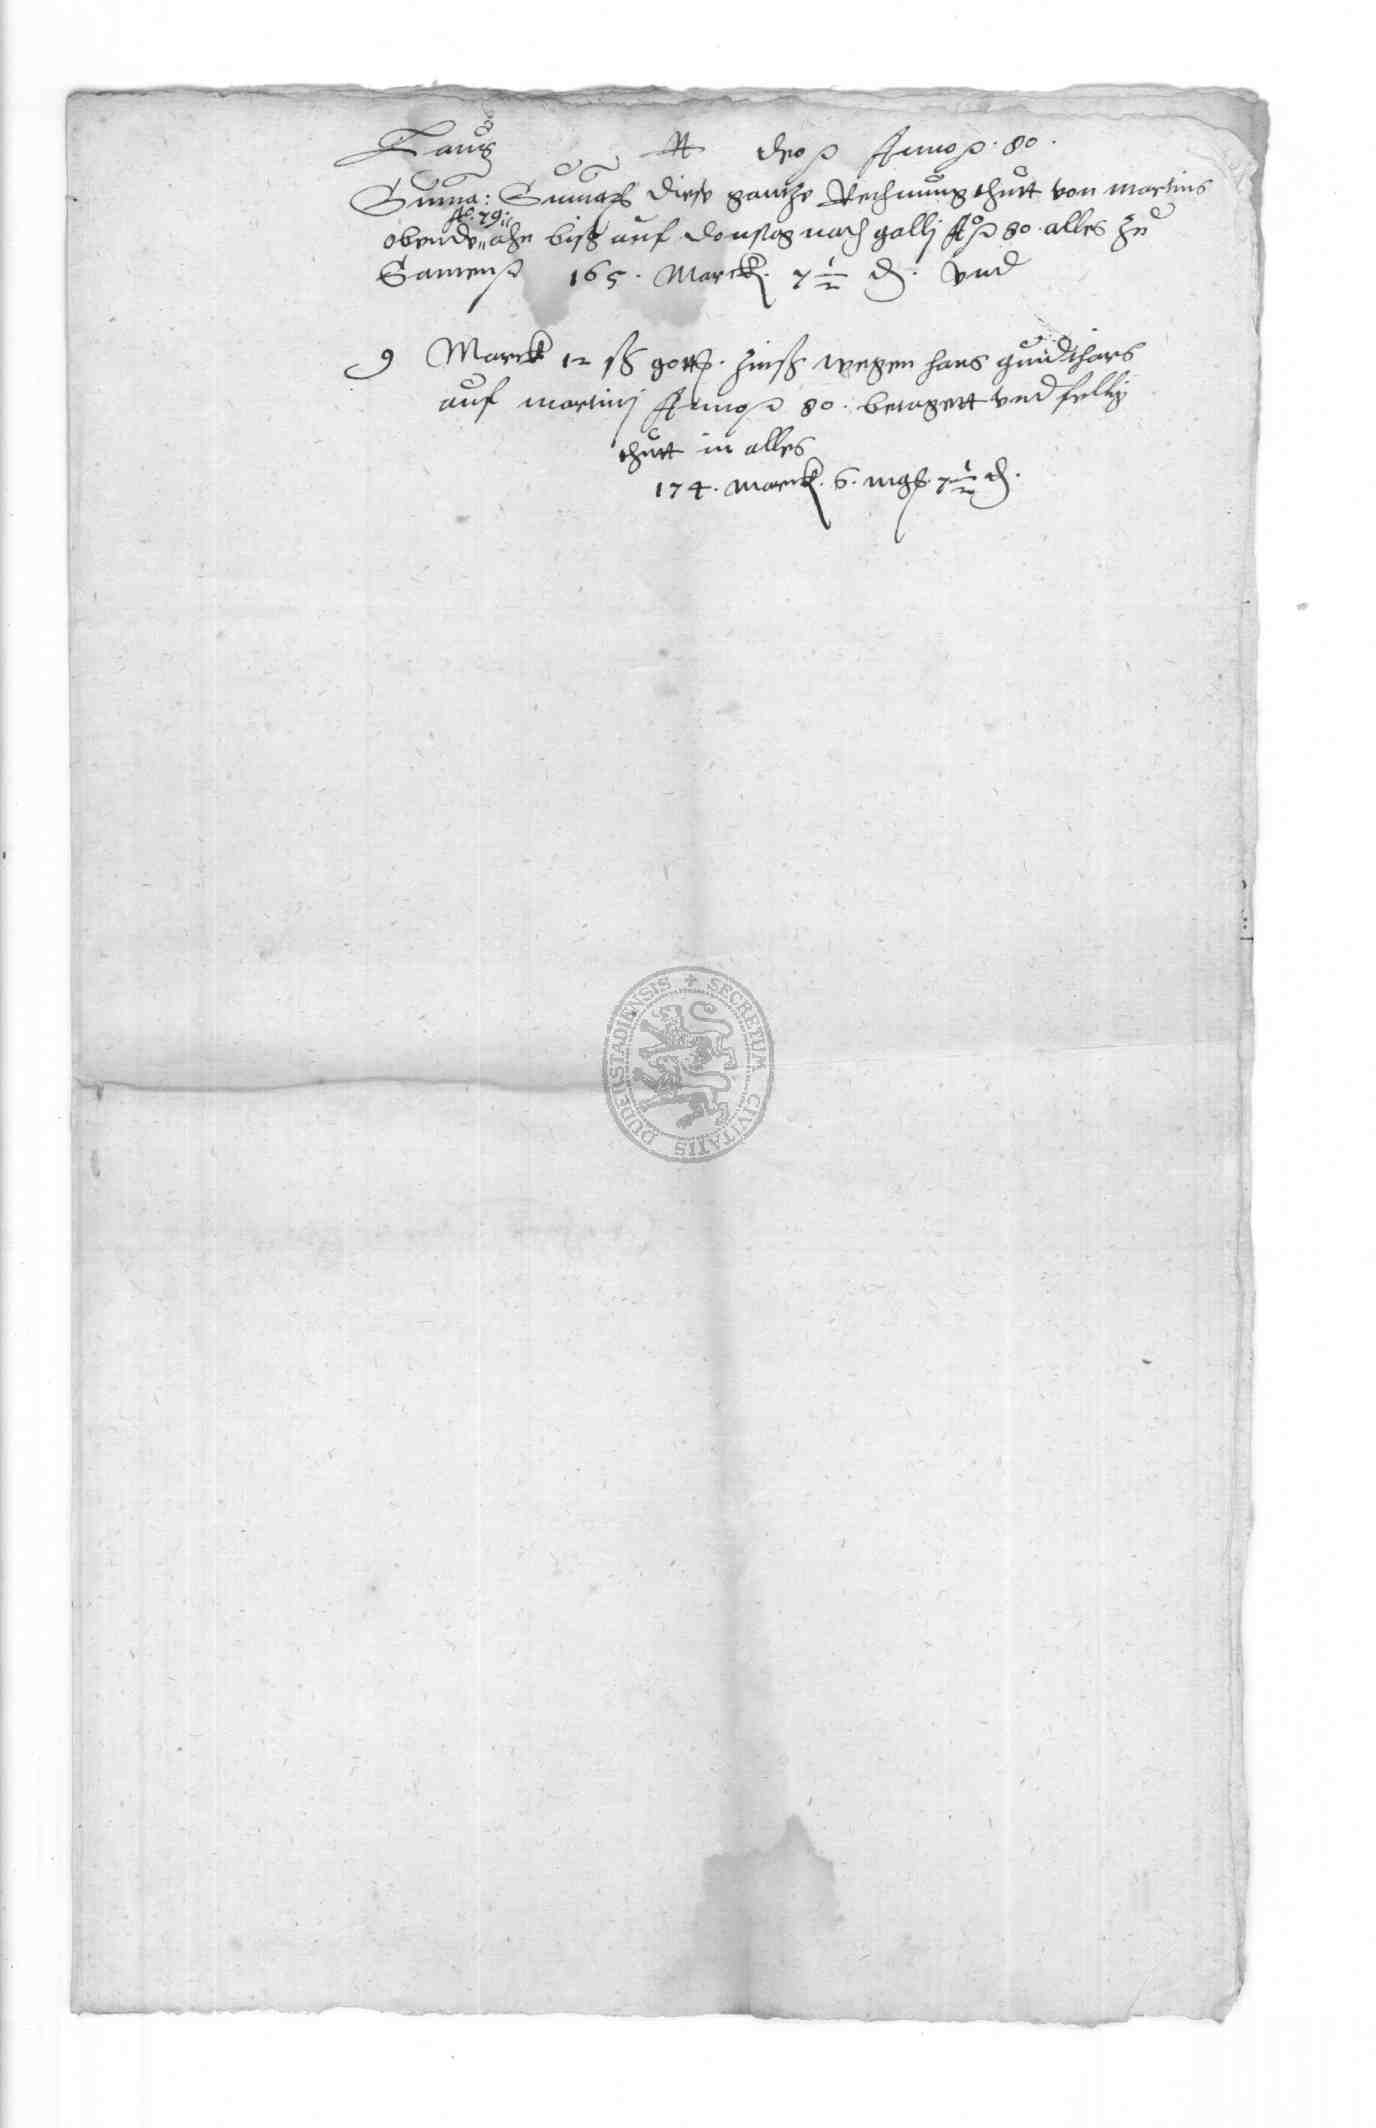 Laus deo Anno 80.
Summa: Summarum diese gantze Rechnung thutt von martins
Ao. 79.
obende ahn biß auf donstag nach gallj Ao 80. alles zu
Samen 165. Marck. 7 1/2 d. vnd
9 Marck 12 ß gott. zinß wegen hans
auf martinj Anno 80. betagett vnd fellig
thutt in alles
174. Marck. 6. mgs. 7 1/2 d.
SECRETUM CIVITATIS DUDERSTADIENSIS